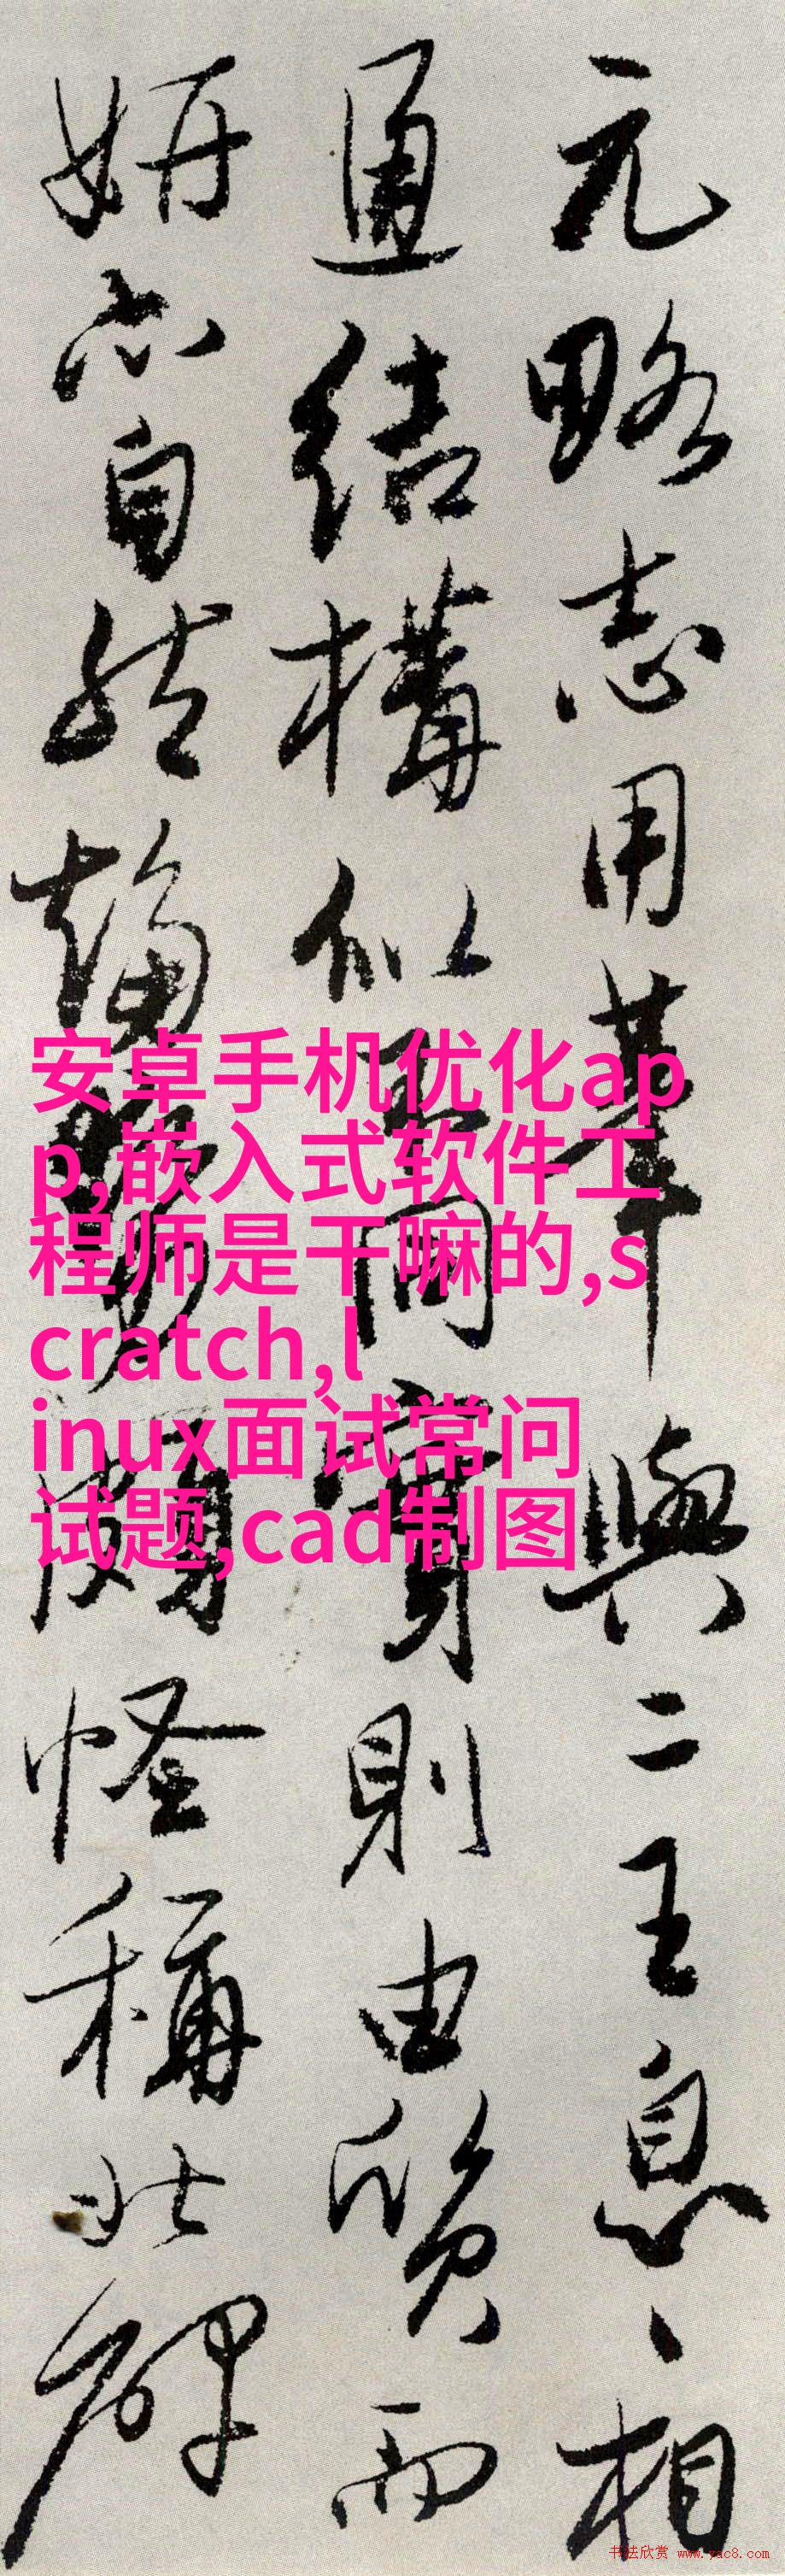 元略志用筆與二王息、相
通結構似
同實則由質而
妍亦自然
頗怪稱北碑
安卓手机优化ap
p,嵌入式软件工
程师是干嘛的,s
cratch,l
inux面试常问
试题,cad制图
书法欣赏 www.yac8.com